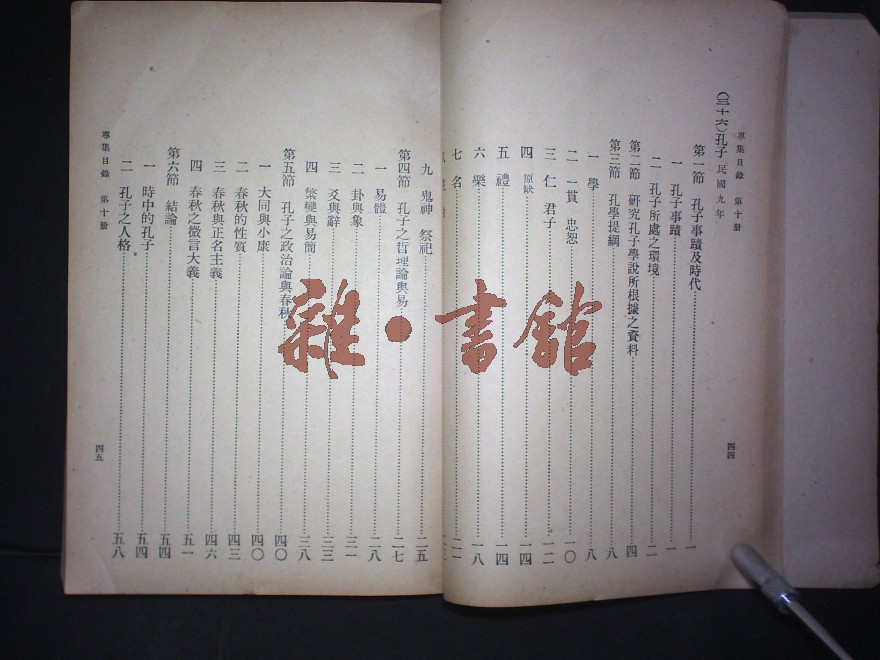 專集目錄 第十册
四四
(三十六)孔子 民國九年
第一節 孔子事蹟及時代 一
一 孔子事蹟 一
二 孔子所處之環境 二
第二節 研究孔子學說所根據之資料 四
第三節 孔學提綱 八
一 學 八
二 一貫 忠恕 一〇
三 仁 君子 一二
四 原缺 一四
五 禮 一四
六 樂 一八
七 名 二一
九 鬼神 祭祀 二五
第四節 孔子之哲理論與易 二七
一 易體 二八
二 卦與象 三一
三 爻與辭 三三
四 繁變與易簡 三八
第五節 孔子之政治論與春秋 四〇
一 大同與小康 四〇
二 春秋的性質 四三
三 春秋與正名主義 四六
四 春秋之微言大義 五一
第六節 結論 五四
一 時中的孔子 五四
二 孔子之人格 五八
專集目錄 第十册
四五
雜·書館